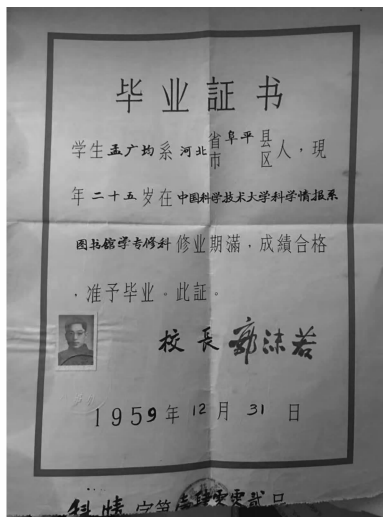 毕业証书
学生孟广均系河北省市阜平县区人,現
年二十五岁在中国科学技术大学科学情报系
图书館学专修科修业期滿,成績合格
,准予毕业。此証。
校長 郭沫若
1959年12月31日
科情字第壹肆零零贰号